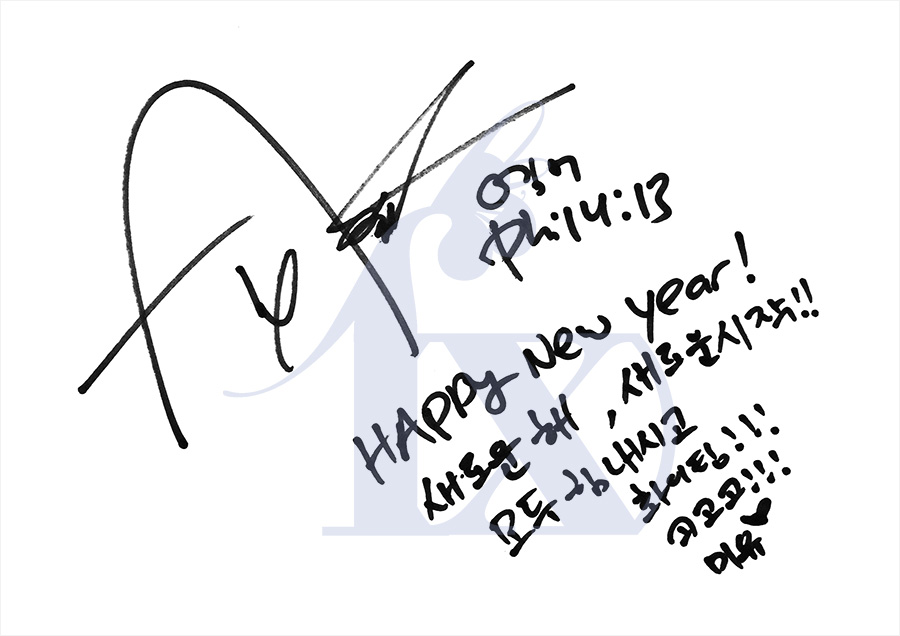 Phil 4:13
HAPPY New year!
새로운 해, 새로운 시작!!
모두 힘내시고
화이팅!!!
고고고!!!